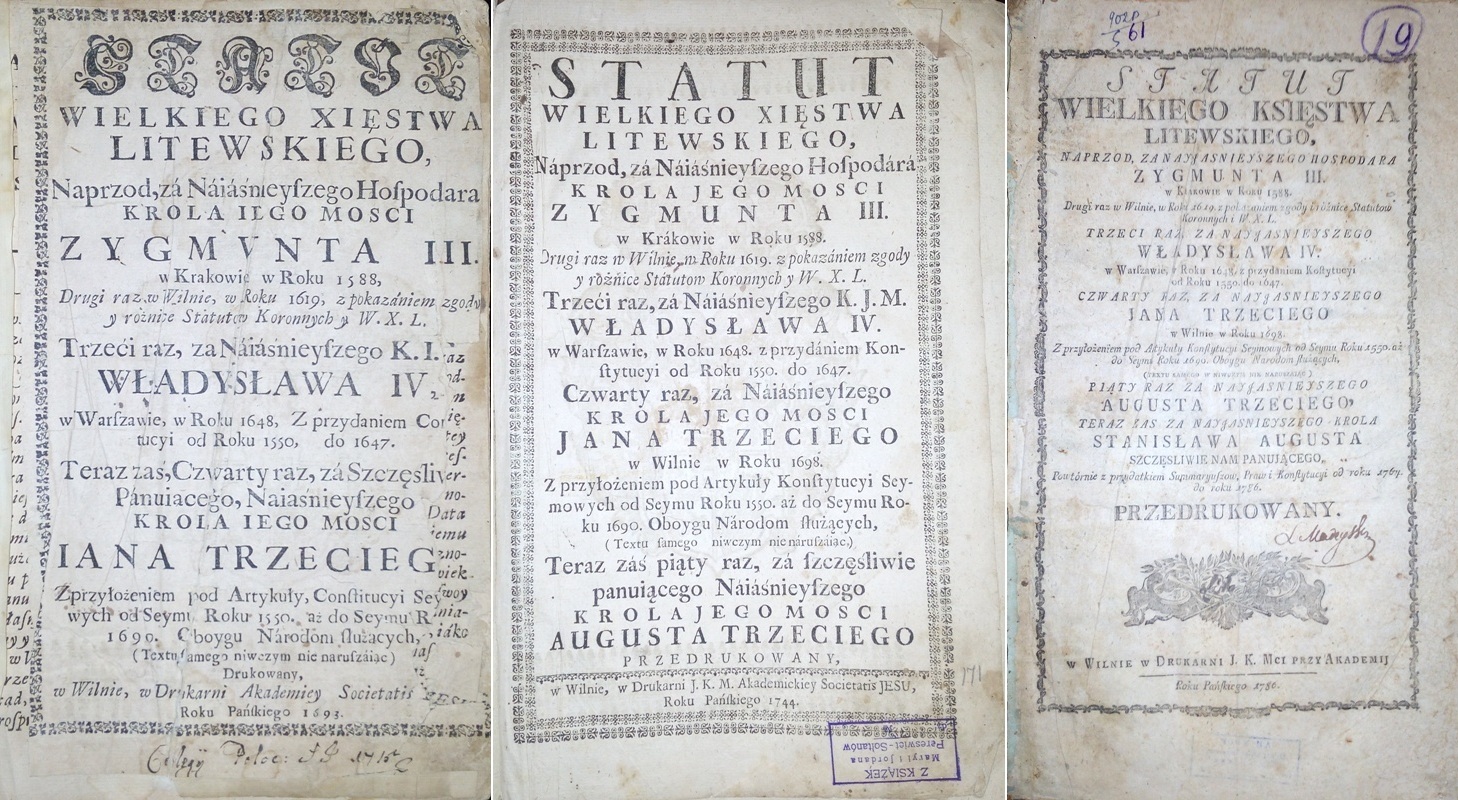 STATVT
WIELKIEGO XIĘSTWA
LITEWSKIEGO,
Naprzod, zá Náiáśnieyſzego Hoſpodara
KROLA IEGO MOSCI
ZYGMVNTA III.
w Krakowie w Roku 1588,
Drugi raz w Wilnie, w Roku 1619, z pokazániem zgody
y rożnice Statutow Koronnych y W. X. L.
Trzeći raz, za Náiáśnieyſzego K. I.
WŁADYSŁAWA IV.
w Warſzawie, w Roku 1648, Z przydaniem Con
tucyi od Roku 1550, do 1647.
Teraz zas, Czwarty raz, zá Szczęsliw
Pánuiacego, Naiaśnieyſzego
KROLA IEGO MOSCI
IANA TRZECIEG
Zprzyłożeniem pod Artykuły, Conſtitucyi Sey
wych od Seymu Roku 1550. aż do Seymu R
1690. Oboygu Národom ſłużących,
(Textu ſamego niwczym nie naruſzáiąc)
Drukowany,
w Wilnie, w Drukarni Akademiey Societatis
Roku Páńſkiego 1693.
1715
STATUT
WIELKIEGO XIĘSTWA
LITEWSKIEGO,
Náprzod, zá Náiáśnieyſzego Hoſpodárá
KROLA JEGO MOSCI
ZYGMUNTA III.
w Krákowie w Roku 1588.
Drugi raz w Wilnie, w Roku 1619. z pokazániem zgody
y rożnice Statutow Koronnych y W. X. L.
Trzeći raz, zá Náiáśnieyſzego K. J. M.
WŁADYSŁAWA IV.
w Warſzawie, w Roku 1648. z przydániem Kon-
ſtytucyi od Roku 1550. do 1647.
Czwarty raz, zá Náiáśnieyſzego
KROLA JEGO MOSCI
JANA TRZECIEGO
w Wilnie w Roku 1698.
Z przyłożeniem pod Artykuły Konſtytucyi Sey-
mowych od Seymu Roku 1550. aż do Seymu Ro-
ku 1690. Oboygu Národom ſłużących,
(Textu ſamego niwczym nie naruſzáiąc.)
Teraz záś piąty raz, zá ſzczęśliwie
panuiącego Náiáśnieyſzego
KROLA JEGO MOSCI
AUGUSTA TRZECIEGO
PRZEDRUKOWANY,
w Wilnie, w Drukarni J. K. M. Akademickiey Societatis JESU,
Roku Páńſkiego 1744.
171
Z KSIĄŻEK
Maryi i Jordana
Pereswiet-Sołtanów
902 P
5 61
19
STATUT
WIELKIEGO KSIĘSTWA
LITEWSKIEGO,
NAPRZOD, ZA NAYJASNIEYSZEGO HOSPODARA
ZYGMUNTA III.
w Krakowie w Roku 1588.
Drugi raz w Wilnie, w Roku 1619. z pokazaniem zgody i różnice Statutow
Koronnych i W. X. L.
TRZECI RAZ, ZA NAYJASNIEYSZEGO
WŁADYSŁAWA IV.
w Warſzawie, w Roku 1648. z przydaniem Koſtytucyi
od Roku 1550. do 1647.
CZWARTY RAZ, ZA NAYJASNIEYSZEGO
JANA TRZECIEGO
w Wilnie w Roku 1698.
Z przyłożeniem pod Artykuły Konſtytucyi Seymowych od Seymu Roku 1550. aż
do Seymu Roku 1690. Oboygu Narodom ſłużących,
(TEXTU SAMEGO W NIWCZYM NIE NARUSZAIĄC)
PIĄTY RAZ ZA NAYJASNIEYSZEGO
AUGUSTA TRZECIEGO,
TERAZ ZAS ZA NAYJASNIEYSZEGO KROLA
STANISŁAWA AUGUSTA
SZCZĘSLIWIE NAM PANUJĄCEGO,
Powtórnie z przydatkiem Summaryuſzow, Praw i Konſtytucyi od roku 1764.
do roku 1786.
PRZEDRUKOWANY.
W WILNIE W DRUKARNI J. K. MCI PRZY AKADEMIJ
Roku Pańſkiego 1786.